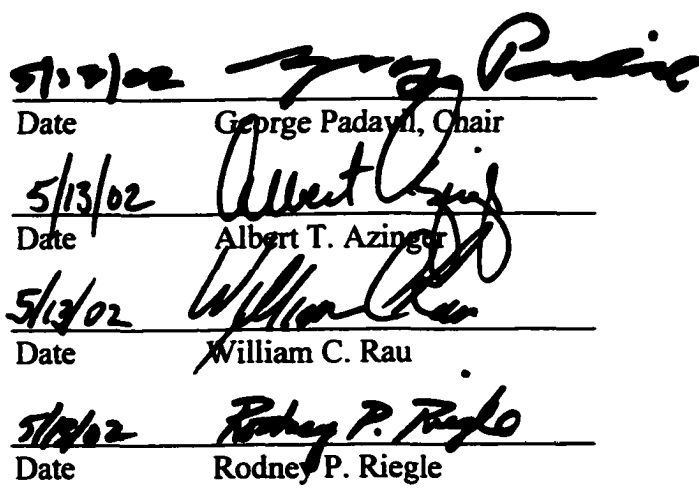 5/13/02
Date George Padavil, Chair
5/13/02 Albert Azinger
Date Albert T. Azinger
5/13/02 William C Rau
Date William C. Rau
5/13/02 Rodney P. Riegle
Date Rodney P. Riegle